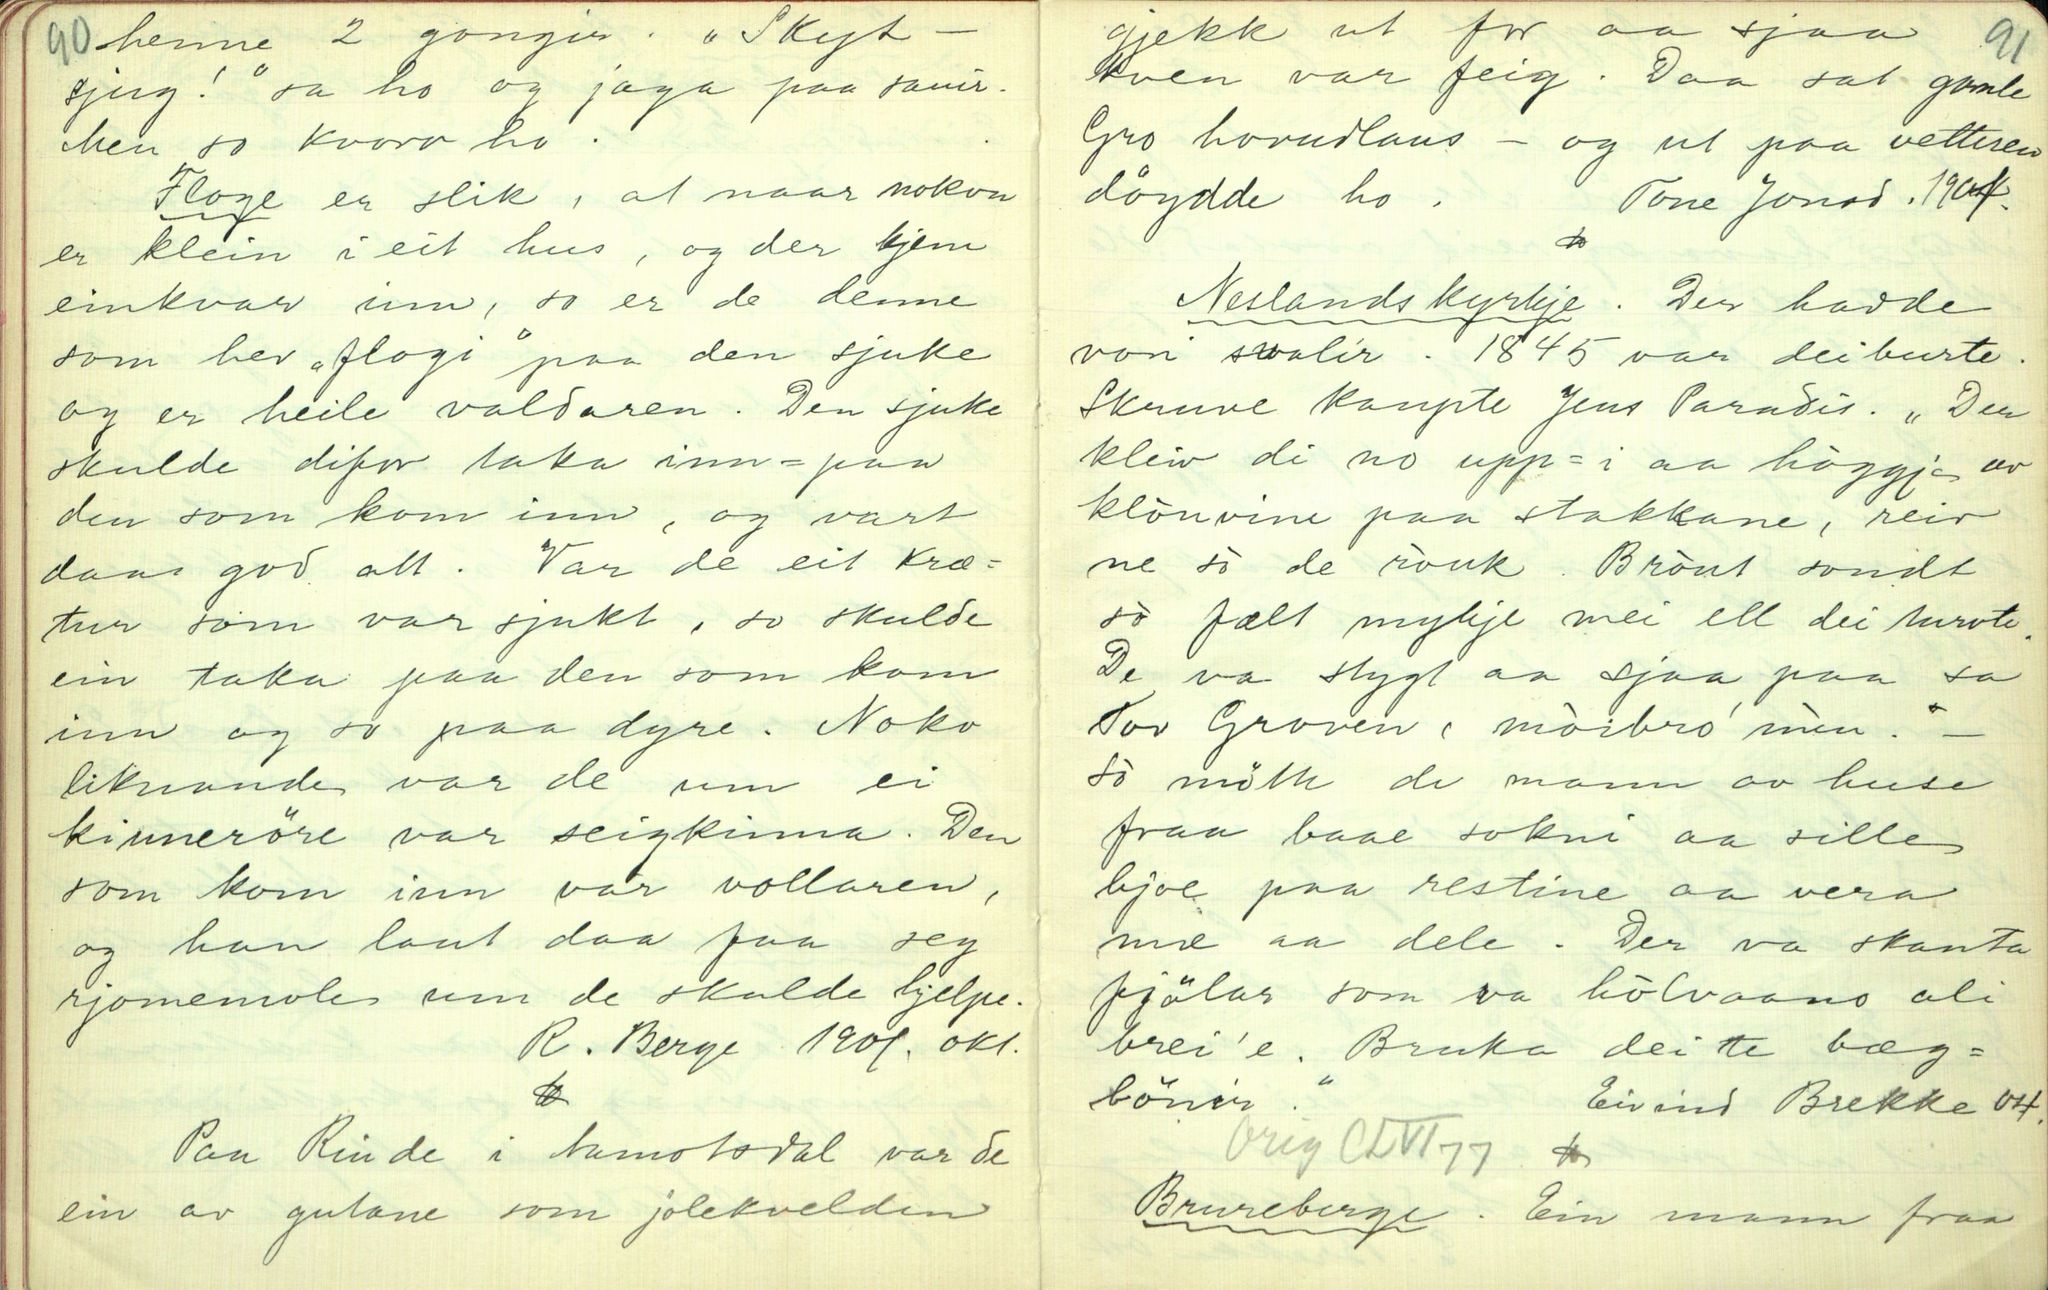 90
henne 2 gongir. "Skyt-
sjug!" sa ho og jaga paa sauir.
Men so kvarv ho.
Floge er slik, at naar nokon
er klein i eit hus, og der kjem
einkvar inn, so er de denne
som hev "flogi" paa den sjuke
og er heile valdaren. Den sjuke
skulde difor taka inn=paa
den som kom inn, og vart
daa god att. Var de eit kræ=
tur som var sjukt, so skulde
ein taka paa den som kom
inn og so paa dyre. Noko
liknande var de um ei
kinneröre var seigkinna. Den
som kom inn var vollaren,
og han laut daa faa seg
rjomemole um de skulde hjelpe.
R. Berge 1904. okt.
Paa Rinde i Aamotsdal var de
ein av gutane som jolekvelden
91
gjekk ut for aa sjaa
kven var feig. Daa sat gamle
Gro hovudlaus - og ut paa vetteren
döydde ho. Tone Jonsd. 1904.
Neslands kyrkje. Der hadde
vori svalir. 1845 var dei burte.
Skruve kaupte Jens Paradis. "Der
kleiv di no upp=i aa höggje av
klönvine paa stakkane, reiv
ne sò de ròuk. Bròut sondt
sò fælt mykje mei ell dei turvte.
De va stygt aa sjaa paa sa
Tov Groven, mòrbro' min." -
Sò mötte de mann av huse
fraa baae sokni aa sille
bjoe paa restine aa vera
mæ aa dele. Der va skanta
fjölar som va hòlvaano ali
brei'e. Bruka dei te bæg=
bönir." Eivind Brekke 04.
Orig CLVI 77
Brureberge. Ein mann fraa